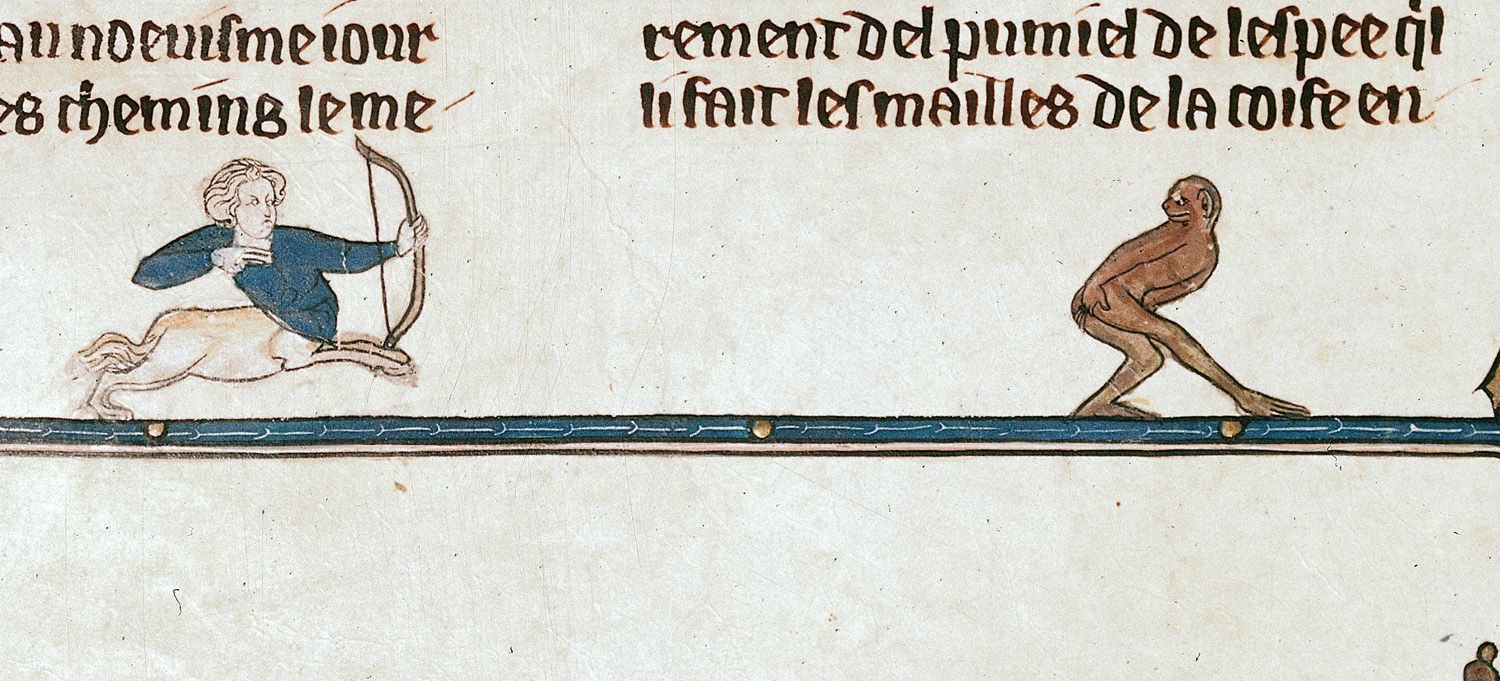 au noeuisme iour
es chemins le me
rement del pumiel de lespee qͥl
li fait les mailles de la coife en